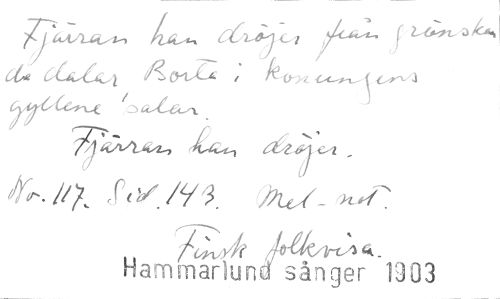 Fjärran han dröjer från grönskan
de dalar Borta i konungens
gyllene salar.
Fjärran han dröjer.
No. 117. Sid. 143. Mel-not.
Finsk folkvisa.
Hammarlund sånger 1903